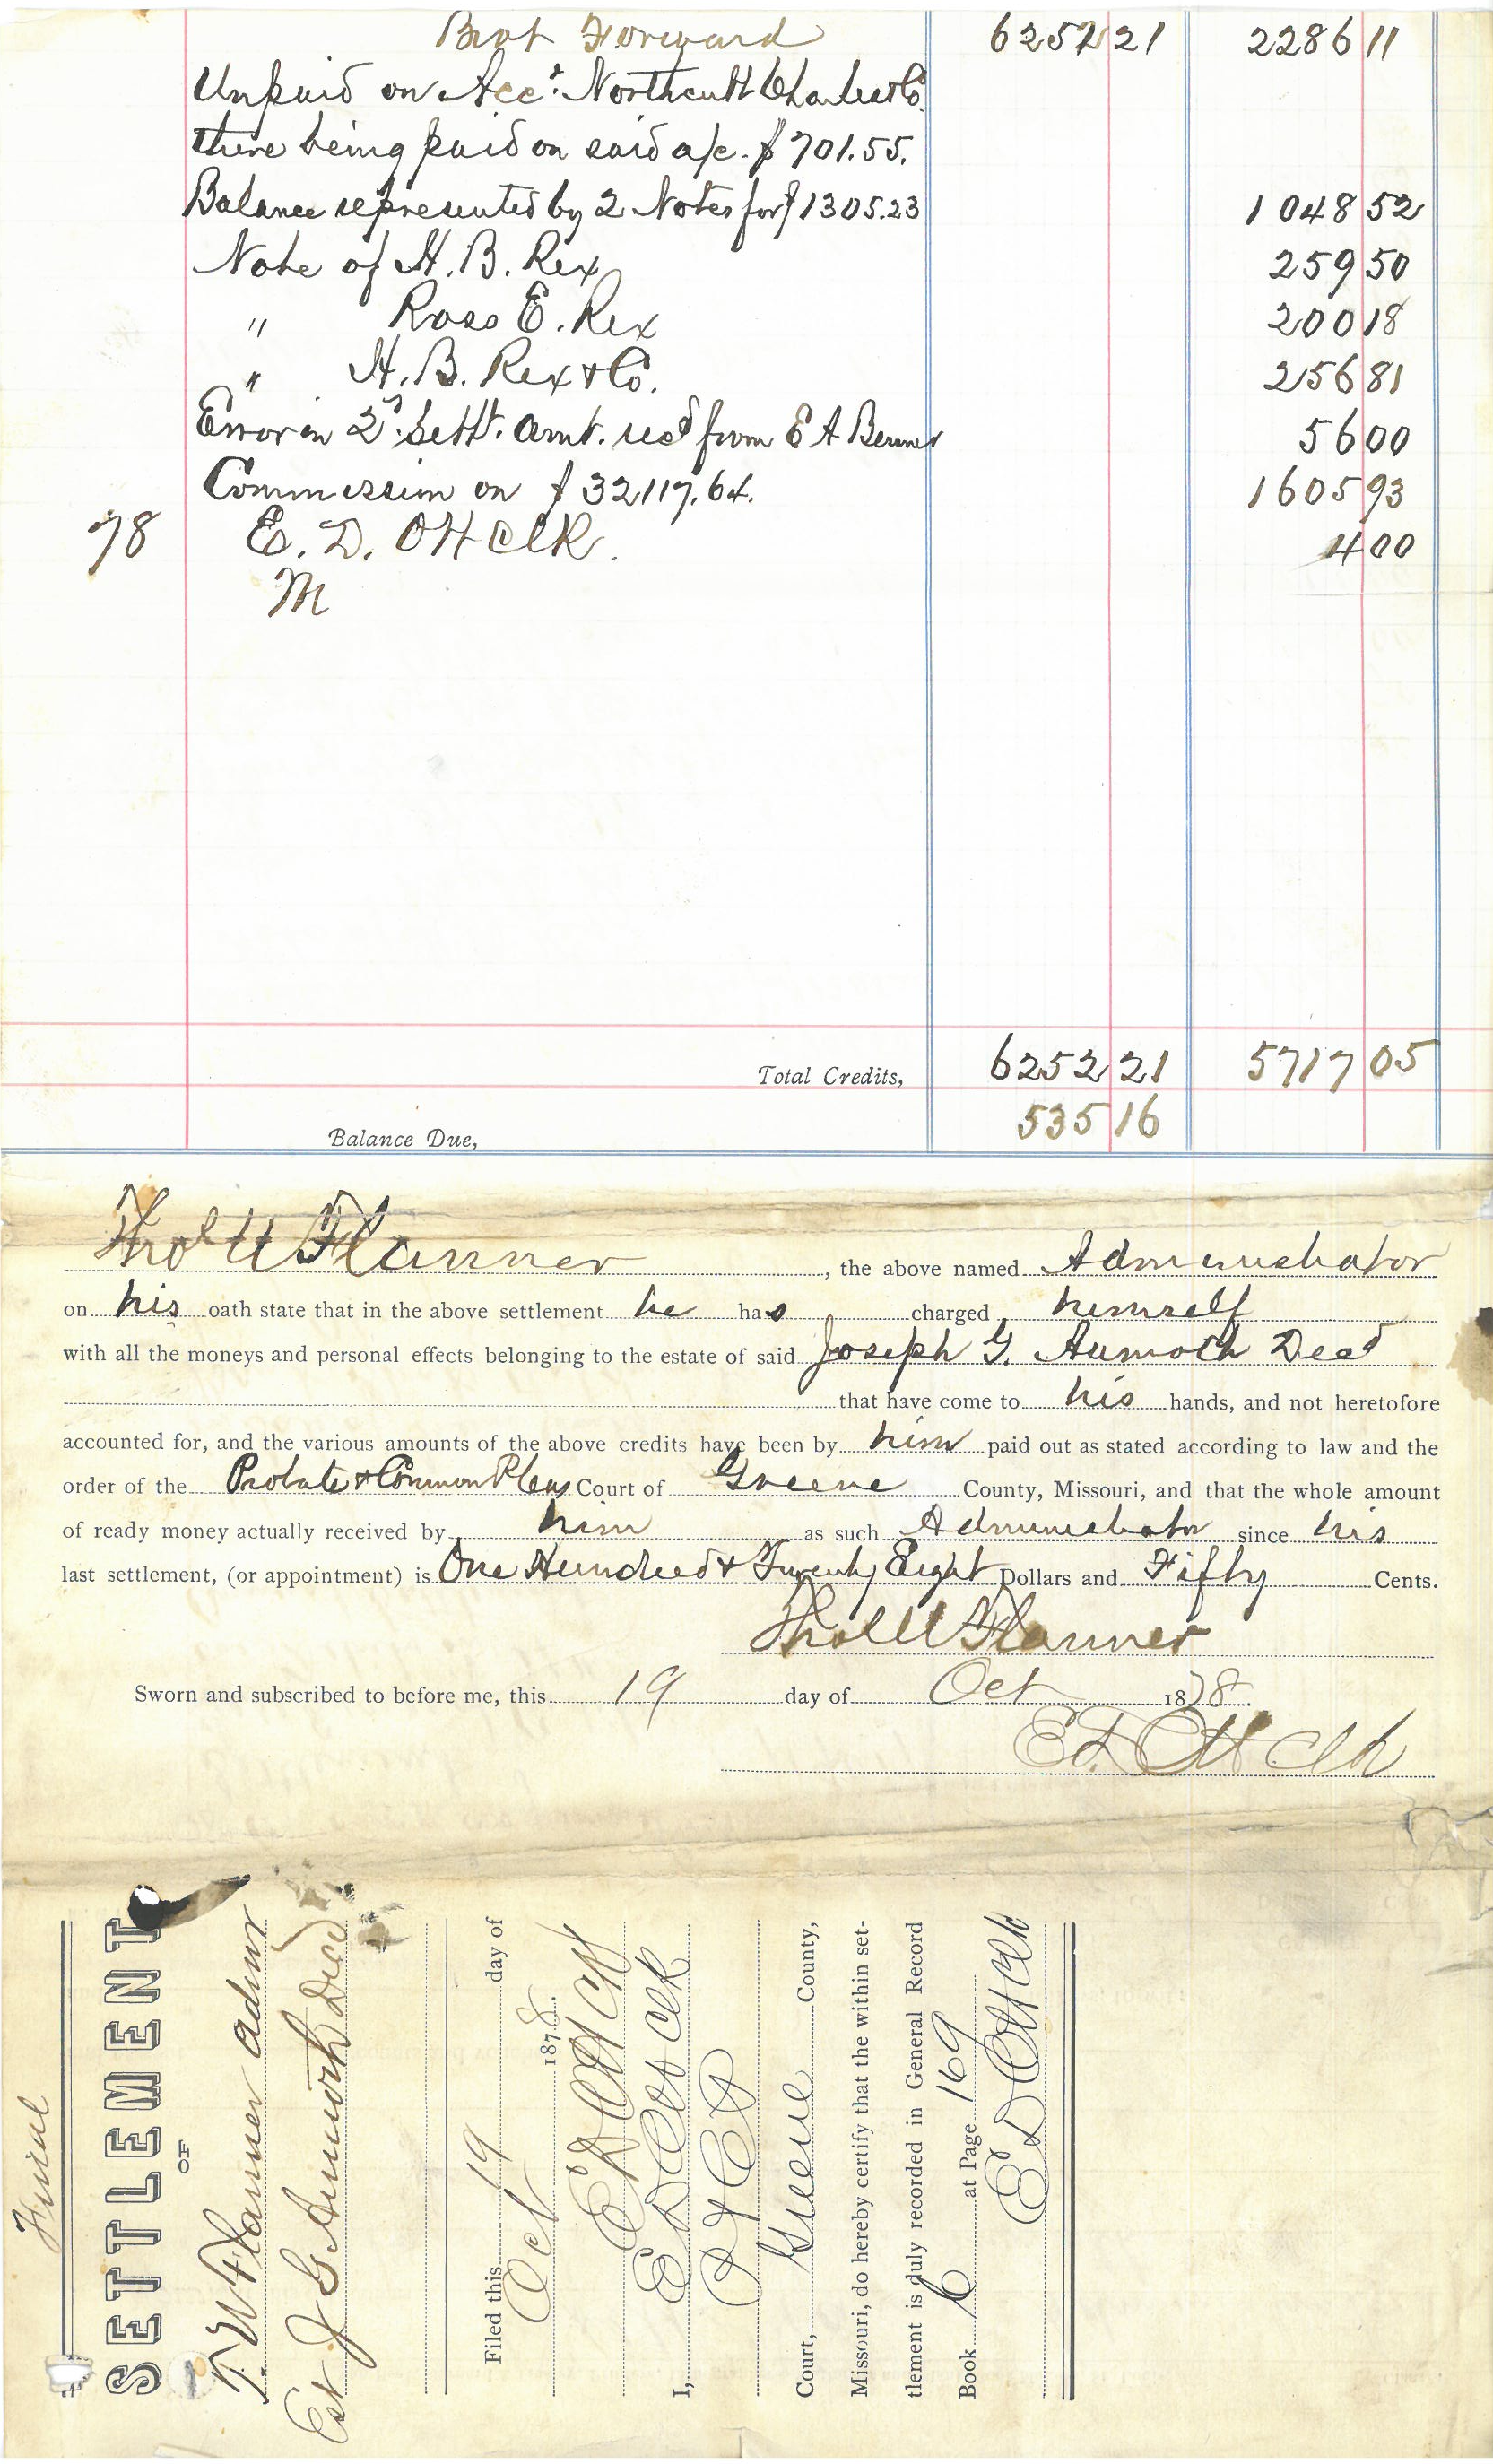 Brot Forward 6252 21 2286 11
Unpaid on Acct. Northcutt Charles & Co
there being paid on said a/c. $701.55.
Balance represented by 2 Notes for $1305.23 1048 52
Note of H. B. Rex 259 50
" Ross E. Rex 200 18
" H. B. Rex & Co. 256 81
Error in 2d. Settt. amt. recd from E A Benner 56 00
Commission on $32117.64. 1605 93
78 E. D. Ott Clk. 4 00
M
Total Credits, 6252 21 5717 05
Balance Due, 535 16
Thos W Flanner, the above named Administrator
on his oath state that in the above settlement he has charged himself
with all the moneys and personal effects belonging to the estate of said Joseph G. Aumoth Decd
that have come to his hands, and not heretofore
accounted for, and the various amounts of the above credits have been by him paid out as stated according to law and the
order of the Probate & Common Pleas Court of Greene County, Missouri, and that the whole amount
of ready money actually received by him as such Administrator since his
last settlement, (or appointment) is One Hundred & Twenty Eight Dollars and Fifty Cents.
Thos W Flanner
Sworn and subscribed to before me, this 19 day of Oct 1878.
E D Ott Clk
Final
SETTLEMENT
OF
T. W Flanner Admr
Est J G Aumoth Decd
Filed this 19 day of
Oct 1878.
E D Ott Clk
I, E D Ott Clk
P & C P
Court, Greene County,
Missouri, do hereby certify that the within set-
tlement is duly recorded in General Record
Book 6 at Page 169
E D Ott Clk